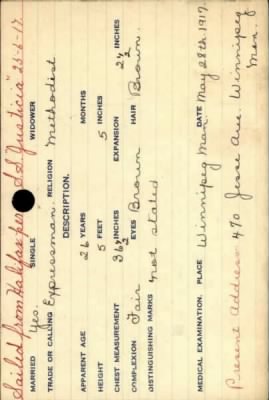 Sailed from Halifax per S.S. Justicia" 25-6-17
MARRIED Yes. SINGLE WIDOWER
TRADE OR CALLING Expressman. RELIGION Methodist
DESCRIPTION.
APPARENT AGE 26 YEARS MONTHS
HEIGHT 5 FEET 5 INCHES
CHEST MEASUREMENT 36½ INCHES EXPANSION 2½ INCHES
COMPLEXION Fair EYES Brown HAIR Brown.
DISTINGUISHING MARKS not stated
MEDICAL EXAMINATION. PLACE Winnipeg Man. DATE May 28th 1917.
Present Address 470 Jesse Ave. Winnipeg
Man.